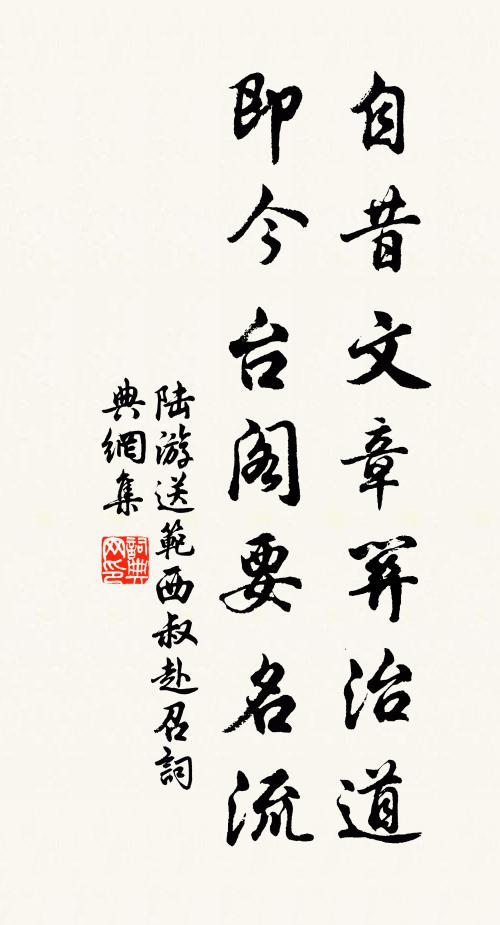 自昔文章關治道
即今台阁要名流
陆游送範西叔赴召詞
典網集
詞典
网印